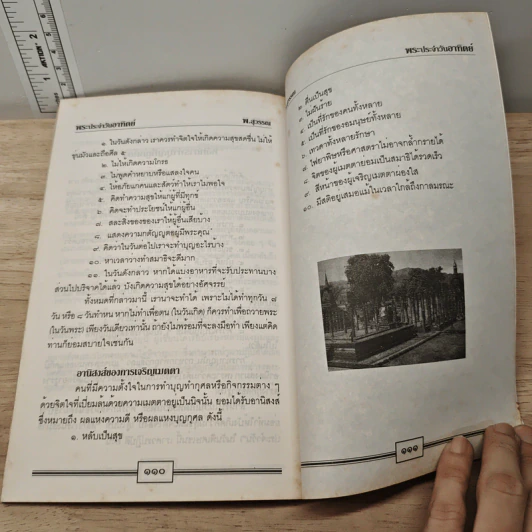 พระประจำวันอาทิตย์ พ.สุวรรณ
๑ ในวันดังกล่าว เราควรทำจิตใจให้เกิดความสุขสดชื่น ไม่ให้
ขุ่นมัวและถือศีล ๕
๒. ไม่ให้เกิดความโกรธ
๓. ไม่พูดคำหยาบหรือแสลงใจคน
๔. ให้อภัยแก่คนและสัตว์ทำให้เราไม่พอใจ
๕ คิดทำความสุขให้แก่ผู้ที่มีทุกข์
๖ คิดจะทำประโยชน์ให้แก่ผู้อื่น
๗ สละสิ่งของของเราให้ผู้อื่นเสียบ้าง
๘ แสดงความกตัญญูต่อผู้มีพระคุณ
๙ คิดว่าในวันต่อไปเราจะทำบุญอะไรบ้าง
๑๐ หาเวลาว่างทำสมาธิจะดีมาก
๑๑ ในวันดังกล่าว หากได้แบ่งอาหารที่จะรับประทานบาง
ส่วนไปบริจาคได้แล้ว บังเกิดความสุขได้อย่างอัศจรรย์
ทั้งหมดที่กล่าวมานี้ เราน่าจะทำได้ เพราะไม่ได้ทำทุกวัน ๗
วัน หรือ ๘ วันทำหน หากไม่ทำเพื่อตน (ในวันเกิด) ก็ควรทำเพื่อถวายพระ
(ในวันพระ) เพียงวันเดียวเท่านั้น ถ้ายังไม่พร้อมที่จะลงมือทำ เพียงแต่คิด
ท่านก็ย่อมสบายใจเช่นกัน
อานิสงส์ของการเจริญเมตตา
คนที่มีความตั้งใจในการทำบุญทำกุศลหรือกิจกรรมต่าง ๆ
ด้วยจิตใจที่เปี่ยมล้นด้วยความเมตตาอยู่เป็นนิจนั้น ย่อมได้รับอานิสงส์
ซึ่งหมายถึง ผลแห่งความดี หรือผลแห่งบุญกุศล ดังนี้
๑. หลับเป็นสุข
๑๑๐
พระประจำวันอาทิตย์
๒. ตื่นเป็นสุข
๓. ไม่ฝันร้าย
๔. เป็นที่รักของคนทั้งหลาย
๕ เป็นที่รักของอมนุษย์ทั้งหลาย
๖. เทวดาทั้งหลายรักษา
๗ ไฟยาพิษหรือศาสตราไม่อาจกล้ำกรายได้
๘ จิตของผู้เมตตาย่อมเป็นสมาธิได้รวดเร็ว
๙. สีหน้าของผู้เจริญเมตตาผ่องใส
๑๐. มีสติอยู่เสมอแม้ในเวลาใกล้ถึงกาลมรณะ
๑๑๑